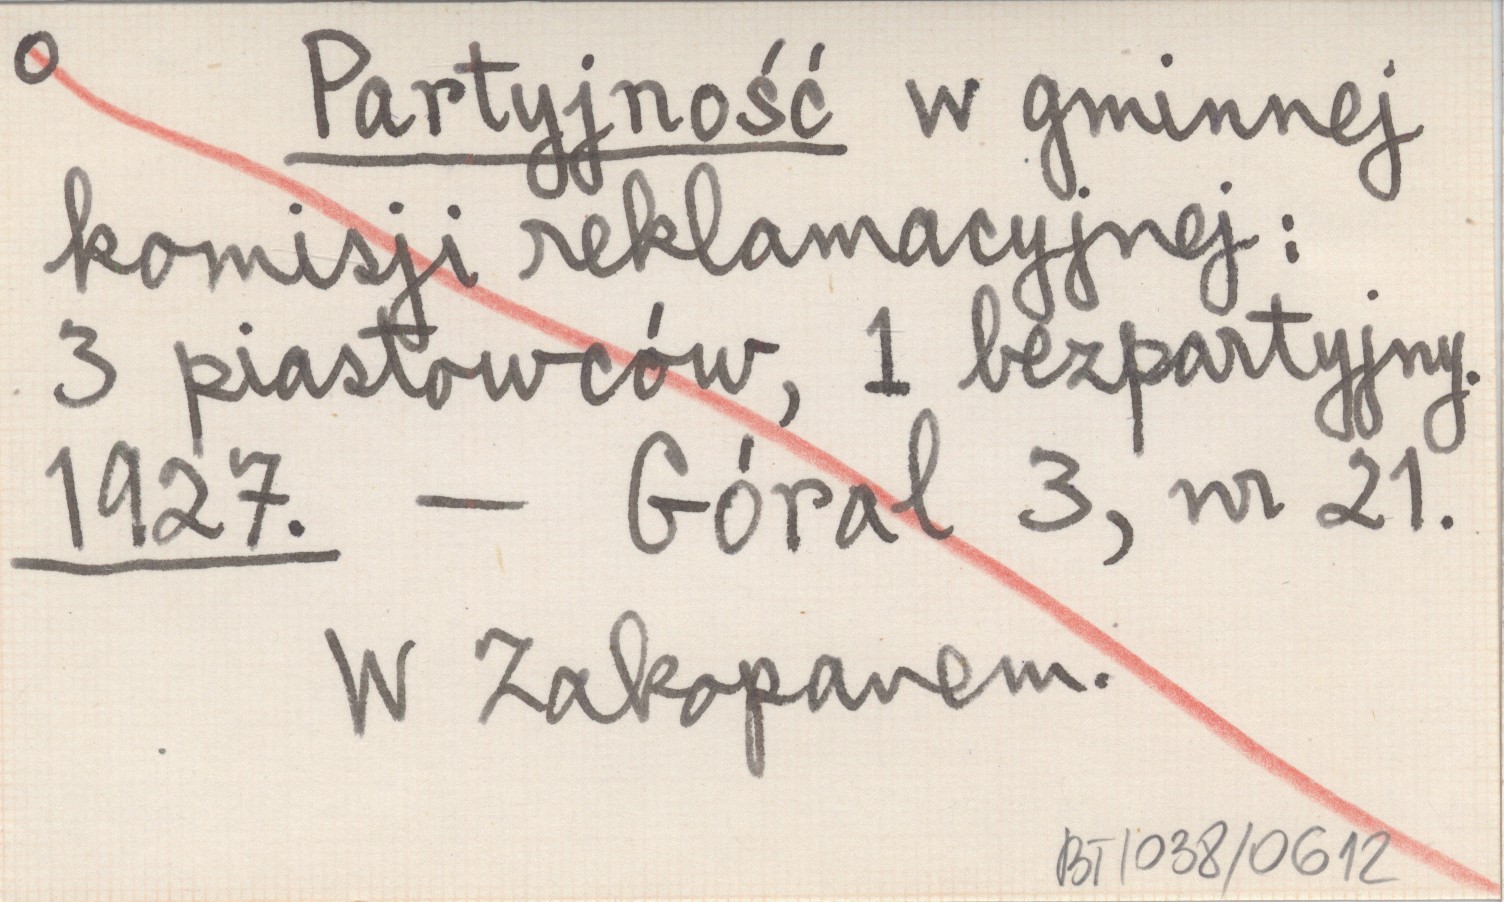 O Partyjność w gminnej
komisji reklamacyjnej:
3 piastowców, 1 bezpartyjny.
1927. — Góral 3, nr 21.
W Zakopanem.
BT/038/0612